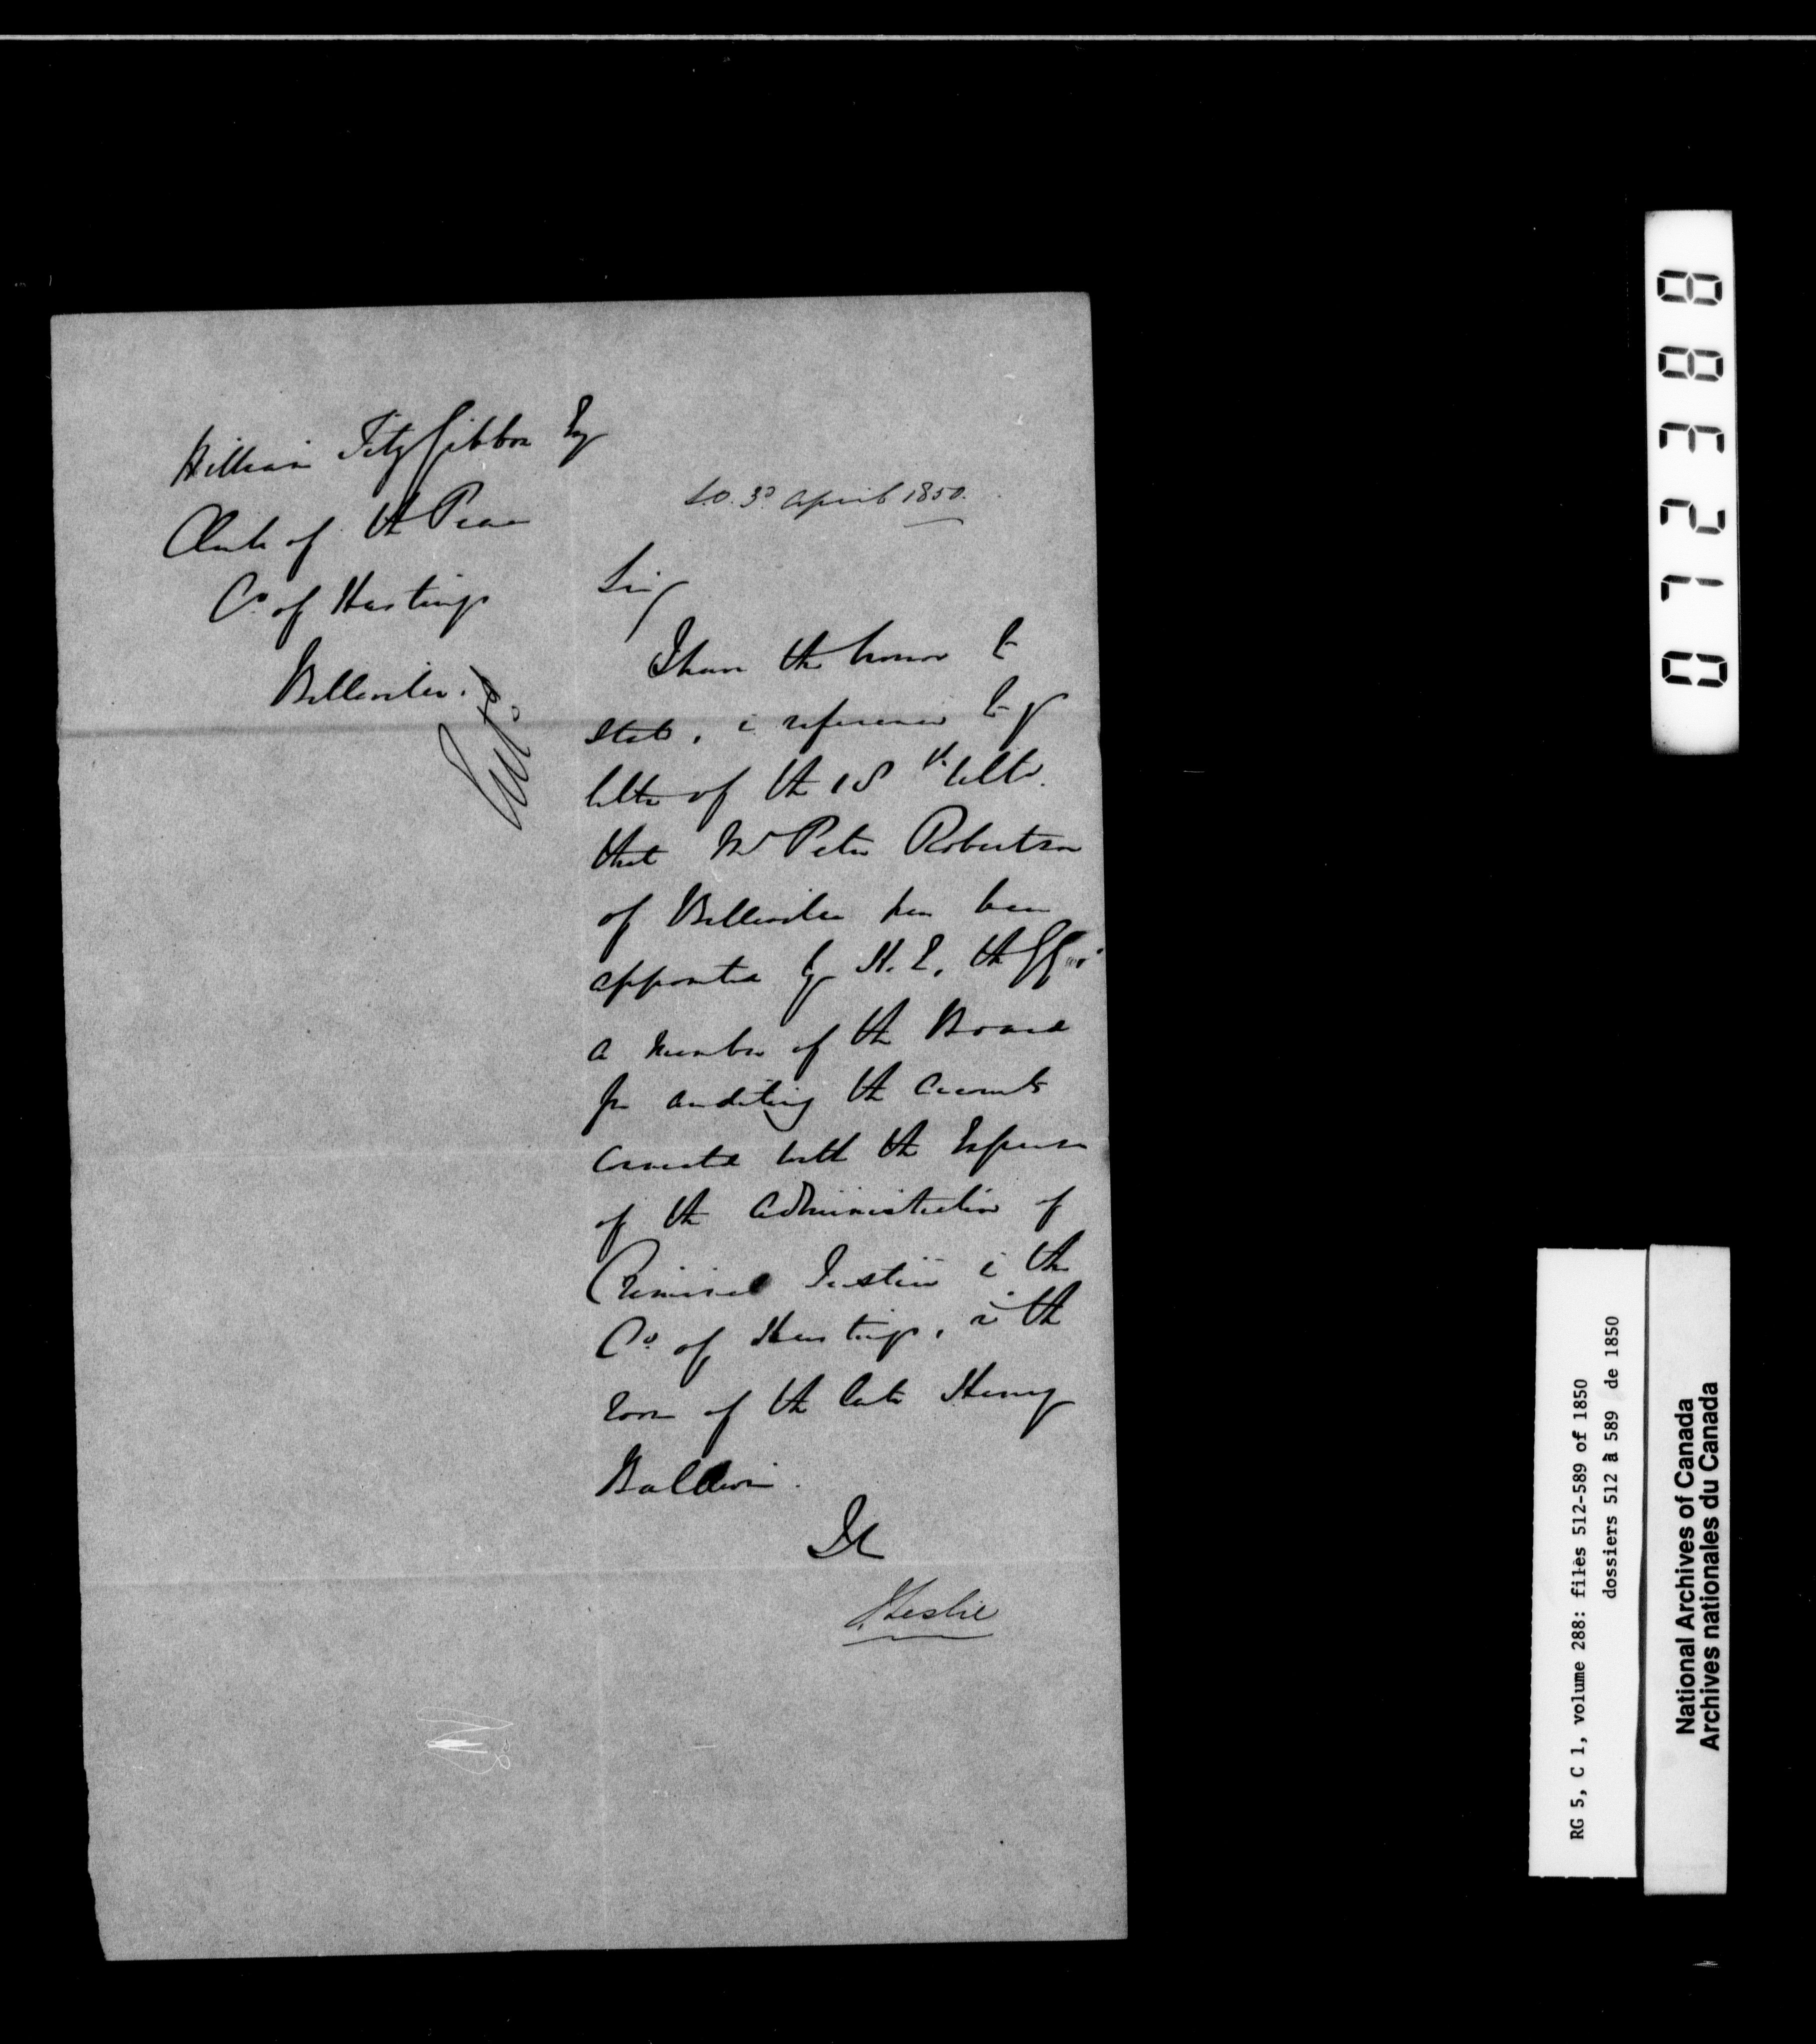 William FitzGibbon Esq
Clerk of the Peace
Co of Hastings
Belleville.
Entd
S.O. 3d April 1850.
Sir,
I have the honor to
state, in reference to yr
letter of the 18th Ulto.
that Mr Peter Robertson
of Belleville has been
appointed by H. E. the GGen
a Member of the Board
for auditing the accounts
connected with the Expenses
of the administration of
Criminal Justice in the
Co of Hastings, in the
room of the late Henry
Baldwin.
I h
J Leslie
883270
RG 5, C 1, volume 288: files 512-589 of 1850
dossiers 512 à 589 de 1850
National Archives of Canada
Archives nationales du Canada